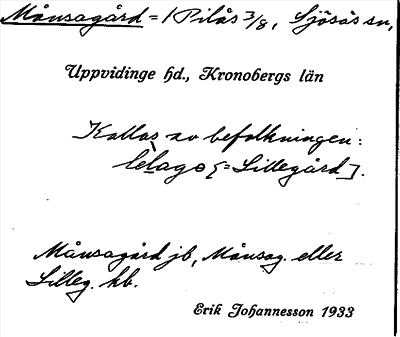 Månsagård = 1 Pilås 3/8, Sjösås sn,
Uppvidinge hd., Kronobergs län
Kallas av befolkningen:
[= Lillegård].
Månsagård jb, Månsag. eller
Lilleg. kb.
Erik Johannesson 1933